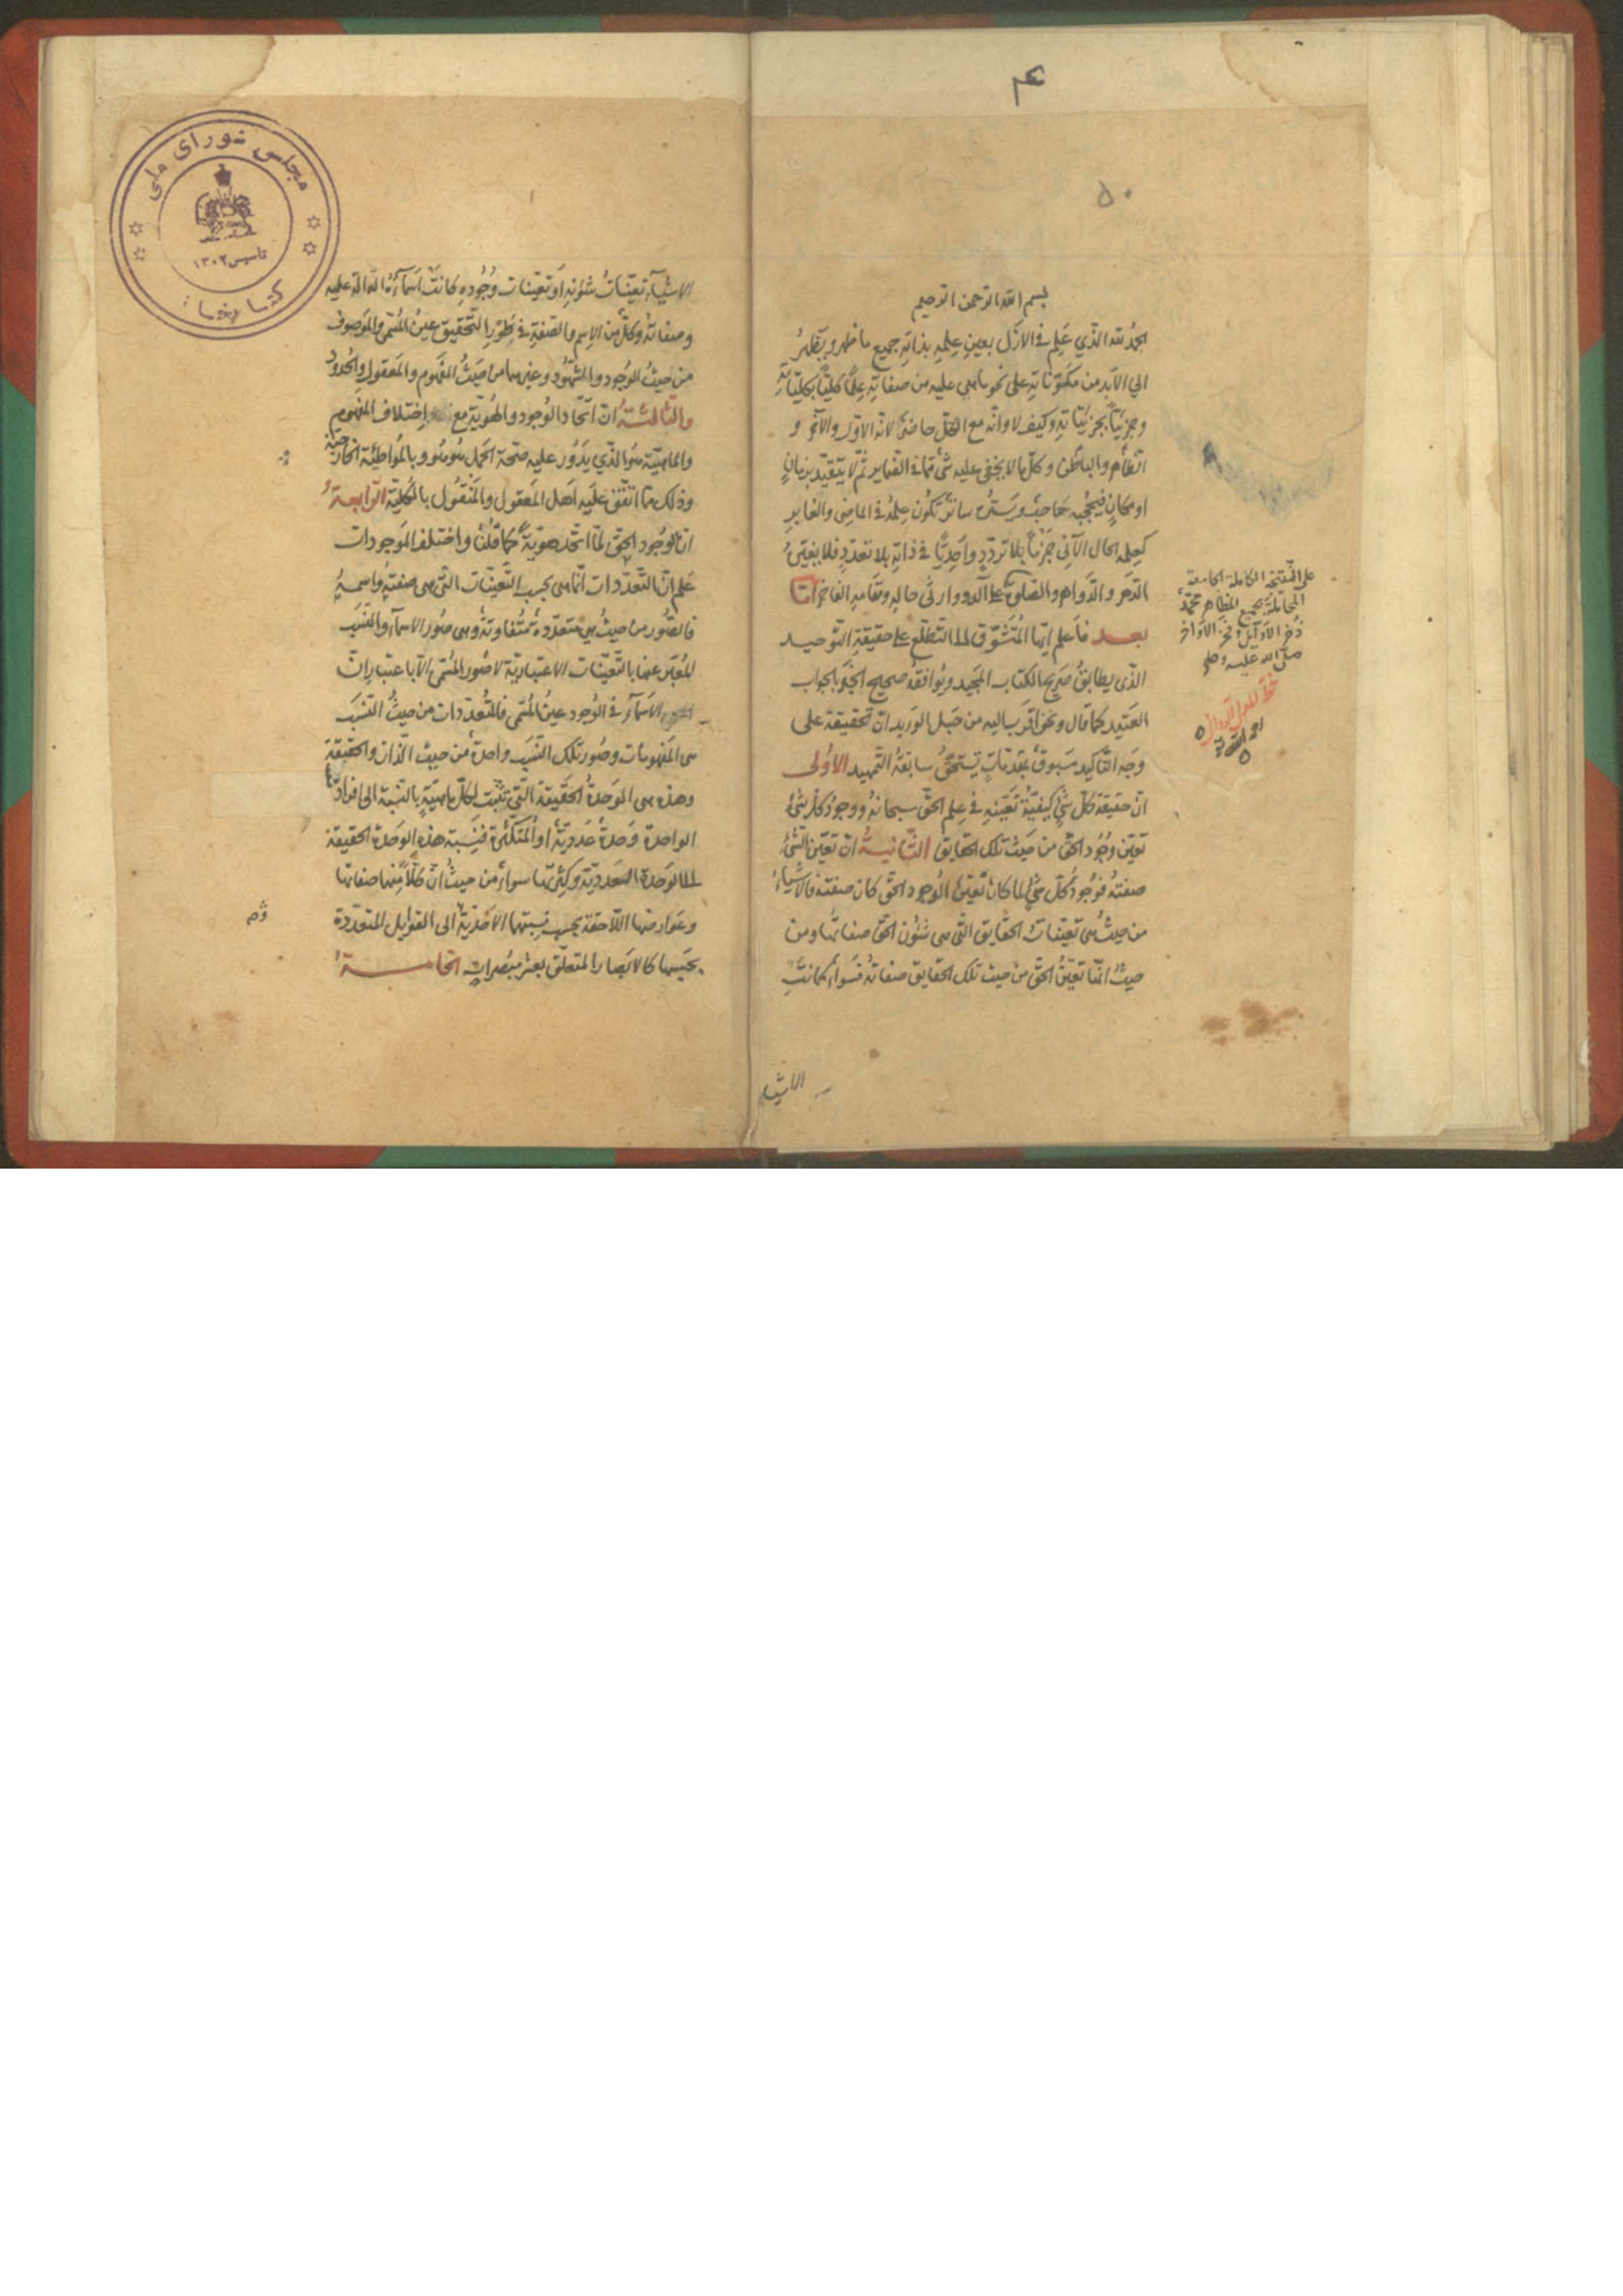 ۴
۵۰
بسم الله الرحمن الرحیم
الحمد لله الذي علم في الازل بعين علمه بذاته جميع ما ظهر ويظهر
الي الابد من مكوناته على نحو ما هى عليه من صفاته علما كليا بكلياته
وجزئيا بجزئياته وكيف لا وانه مع الكل حاضر لانه الاول والآخر و
الظاهر والباطن وكل ما لا يخفى عليه شئ مما في الضماير ثم لا يتقيد بزمان
او مكان فيحجبه حاجب ويستره ساتر تكون علمه في الماضى والغابر
كعلمه الحال الآنى جزئيا بلا تردد واحديا في ذاته بلا تعدد فلا يغيره
الدهر والدوام والصلوة على الدوو وارثى حاله ومقامه الفاخر اما
بعد فاعلم ايها المتشوق الى التطلع على حقيقة التوحيد
الذى يطابق صريح الكتاب المجيد ويوافقه صحيح الجواب
العتيد كما قال ونحن اقرب اليه من حبل الوريد ان تحقيقه على
وجه التاكيد مسبوق بمقدمات يستحق سابقة التمهيد الاولى
ان حقيقة كل شئ كيفية تعينه في علم الحق سبحانه ووجود كل شئ
تعين وجود الحق من حيث تلك الحقايق الثانية ان تعين الشئ
صفته فوجود كل شئ لما كان تعين الوجود الحق كان صفته فالاشياء
من حيث هى تعينات الحقايق التى هى شئون الحق صفاتها ومن
حيث انها تعين الحق من حيث تلك الحقايق صفاته فسواء كانت
الاشياء
على النسخة الكاملة الجامعة
لجميع المظاهر محمد
ذخر الاوايل فخر الاواخر
صلى الله عليه وسلم
مجلس شورای ملی
تاسیس ۱۳۰۲
کتابخانه
الاشياء تعينات شئونه او تعينات وجوده كانت اسماءه الدالة عليه
وصفاته وكل من الاسم والصفة في طور التحقيق عين المسمى والموصوف
من حيث الوجود والمشهود وغيرهما من حيث المفهوم والمعقول والحدود
والثالثة ان اتحاد الوجود والهوية مع اختلاف المفهوم
والماهية هو الذي يدور عليه صحة الحمل هو هو وبالمواطئة الخارجية
وذلك مما اتفق عليه اهل المعقول والمنقول بالكلية الرابعة
ان الوجود الحق لما اتحد هوية كما قلنا واختلف الموجودات
علم ان التعددات انما هى بحسب التعينات التى هى صفته واسمه
فالصور من حيث هي متعددة متفاوتة وهى صور الاسماء والنسب
المعبر عنها بالتعينات الاعتبارية لا صور المسمى الا باعتبار ان
الاسماء في الوجود عين المسمى فالتعددات من حيث النسب
هى المفهومات وصور تلك النسب واحدة من حيث الذات والحقيقة
وهذه هى الوحدة الحقيقة التى تثبت لكل ماهية بالنسبة الى افراد
الواحدة وحدة عددية او المتكثرة فنسبة هذه الوحدة الحقيقة
الى الوحدة العددية وكثرتها سواء من حيث ان كلا منها صفاتها
وعوارضها اللاحقة بحسب نسبتها الى القوابل المتعددة
بحسبها كالابصار المتعلق بعشر مبصرات الخامسة